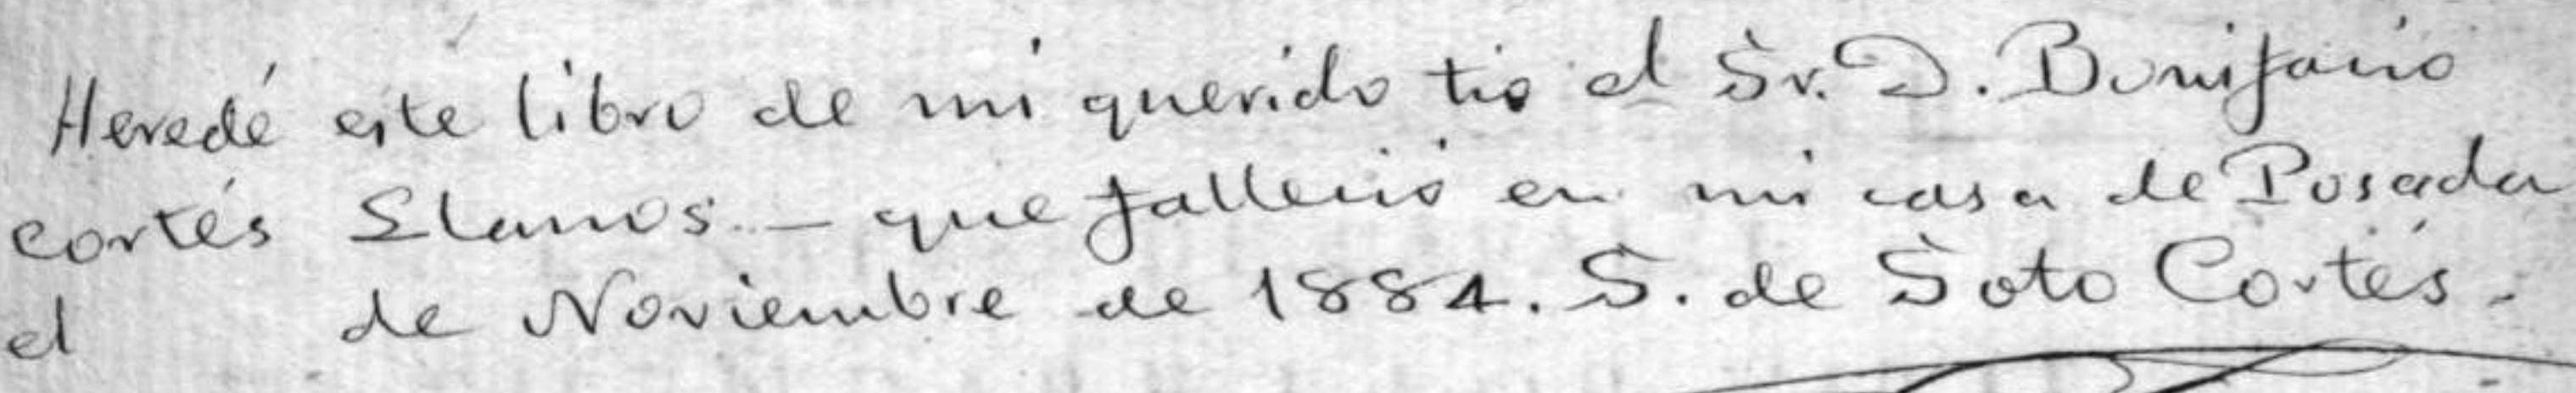 Heredé este libro de mi querido tio el Sr. D. Bonifacio
Cortés Llanos. – que falleció en mi casa de Posada
el de Noviembre de 1884. S. de Soto Cortés.